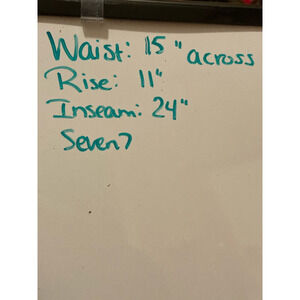 Waist: 15" across
Rise: 11"
Inseam: 24"
Seven7